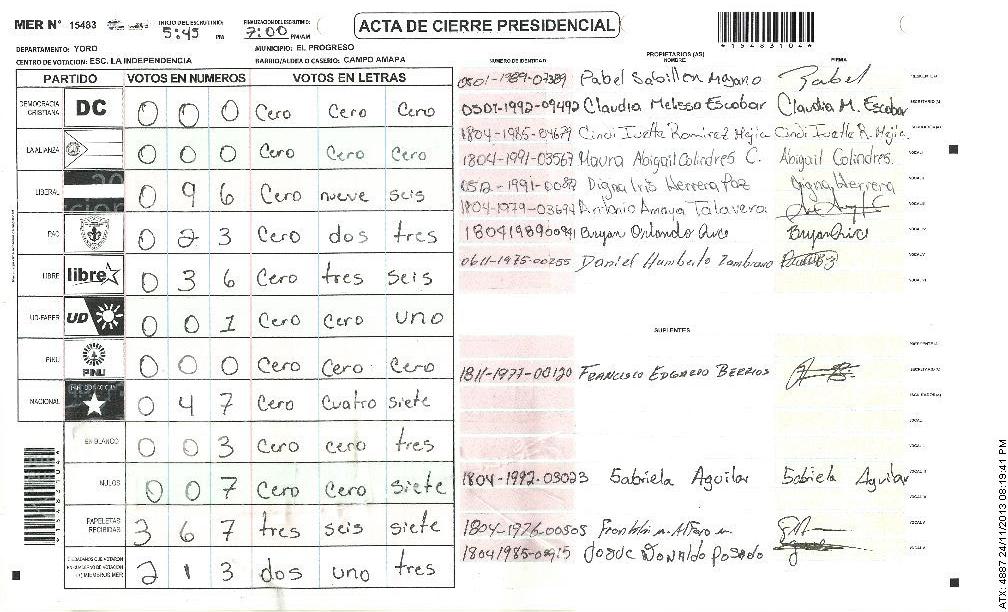 MER N° 15483 INICIO DEL ESCRUTINIO: 5:45 PM FINALIZACION DEL ESCRUTINIO: 7:00 PM/AM ACTA DE CIERRE PRESIDENCIAL *15483104*
DEPARTAMENTO: YORO MUNICIPIO: EL PROGRESO
CENTRO DE VOTACION: ESC. LA INDEPENDENCIA BARRIO/ALDEA O CASERIO: CAMPO AMAPA
PARTIDO VOTOS EN NUMEROS VOTOS EN LETRAS
DEMOCRACIA CRISTIANA DC 0 0 0 Cero Cero Cero
LA ALIANZA 0 0 0 Cero Cero Cero
LIBERAL 0 9 6 Cero nueve seis
PAC 0 2 3 Cero dos tres
LIBRE libre 0 3 6 Cero tres seis
UD-FAPER UD 0 0 1 Cero Cero uno
PINU PINU 0 0 0 Cero Cero Cero
NACIONAL 0 4 7 Cero Cuatro siete
EN BLANCO 0 0 3 Cero cero tres
NULOS 0 0 7 Cero Cero siete
PAPELETAS RECIBIDAS 3 6 7 tres seis siete
CIUDADANOS QUE VOTARON 2 1 3 dos uno tres
NUMERO DE IDENTIDAD PROPIETARIOS (AS) NOMBRE FIRMA
0501-1989-07389 Pabel Sabillon Pabel
0501-1992-09492 Claudia Melissa Escobar Claudia M. Escobar
1804-1985-04679 Cindi Ivette Ramirez Mejia Cindi Ivette R. Mejia
1804-1991-03567 Maura Abigail Colindres C. Abigail Colindres
Digna Iris Herrera Paz Digna Herrera
Antonio Amaya Talavera
Bryan Orlando
0611-1975-00255 Daniel Humberto Zambrano
SUPLENTES
1811-1977-00120 Francisco Edgardo Berrios
1804-1992-03023 Gabriela Aguilar Gabriela Aguilar
1804-1976-00505
Josue Donaldo Posado
ATX: 4887 24/11/2013 08:19:41 PM